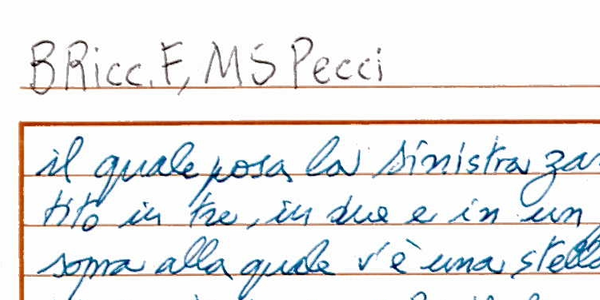 BRicc. F, MS Pecci
il quale posa la sinistra za
tito in tre, in due e in un
sopra alla quale v'è una stella